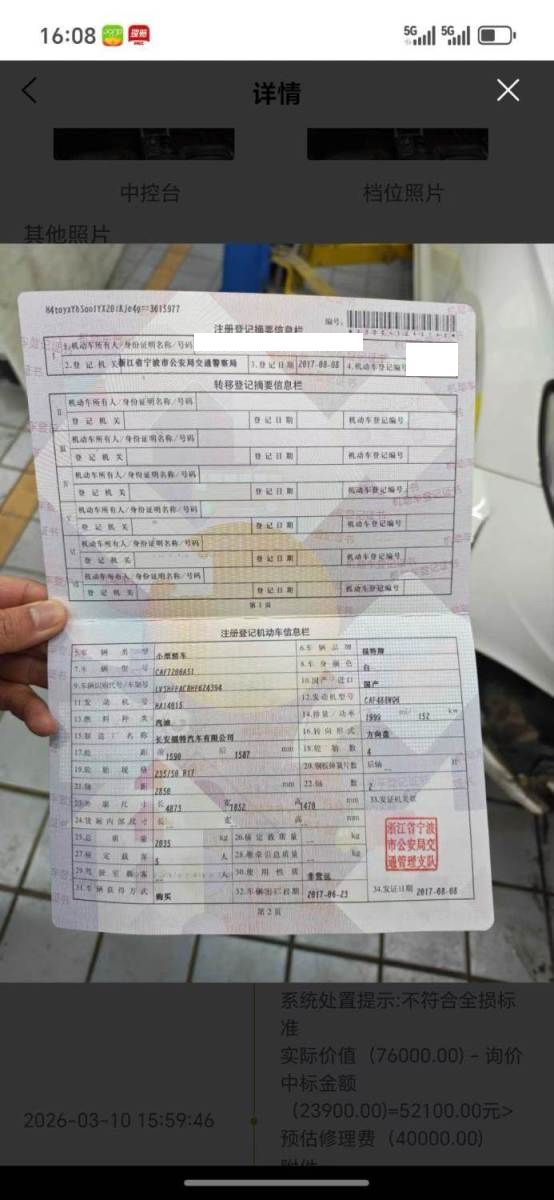 16:08
5G 5G
详情
中控台 档位照片
其他照片
编号:
注册登记摘要信息栏
1.机动车所有人/身份证明名称/号码
2.登记机关 浙江省宁波市公安局交通警察局 3.登记日期 2017-08-08 4.机动车登记编号
转移登记摘要信息栏
机动车所有人/身份证明名称/号码
登记机关 登记日期 机动车登记编号
机动车所有人/身份证明名称/号码
登记机关 登记日期 机动车登记编号
机动车所有人/身份证明名称/号码
登记机关 登记日期 机动车登记编号
机动车所有人/身份证明名称/号码
登记机关 登记日期 机动车登记编号
机动车所有人/身份证明名称/号码
登记机关 登记日期 机动车登记编号
机动车所有人/身份证明名称/号码
登记机关 登记日期 机动车登记编号
第1页
注册登记机动车信息栏
5.车辆类型 小型轿车 6.车辆品牌 福特牌
7.车辆型号 CAF7200A51 8.车身颜色 白
9.车辆识别代号/车架号 10.国产/进口 国产
11.发动机号 HA14015 12.发动机型号
13.燃料种类 汽油 14.排量/功率 1999 ml/ 152 kw
15.制造厂名称 长安福特汽车有限公司 16.转向形式 方向盘
17.轮距 前 1590 后 1587 mm 18.轮胎数 4
19.轮胎规格 235/50 R17 20.钢板弹簧片数 后轴 -- 片
21.轴距 2850 mm 22.轴数 2
23.外廓尺寸 长 4873 宽 1852 高 1470 mm 33.发证机关章
24.货厢内部尺寸 长 -- 宽 -- 高 -- mm
25.总质量 2035 kg 26.核定载质量 -- kg
27.核定载客 5 人 28.准牵引总质量 -- kg
29.驾驶室载客 -- 人 30.使用性质 非营运
31.车辆获得方式 购买 32.车辆出厂日期 2017-06-23 34.发证日期 2017-08-08
浙江省宁波
市公安局交
通管理支队
第2页
系统处置提示:不符合全损标
准
实际价值（76000.00) - 询价
中标金额
（23900.00)=52100.00元>
预估修理费（40000.00)
2026-03-10 15:59:46
附件